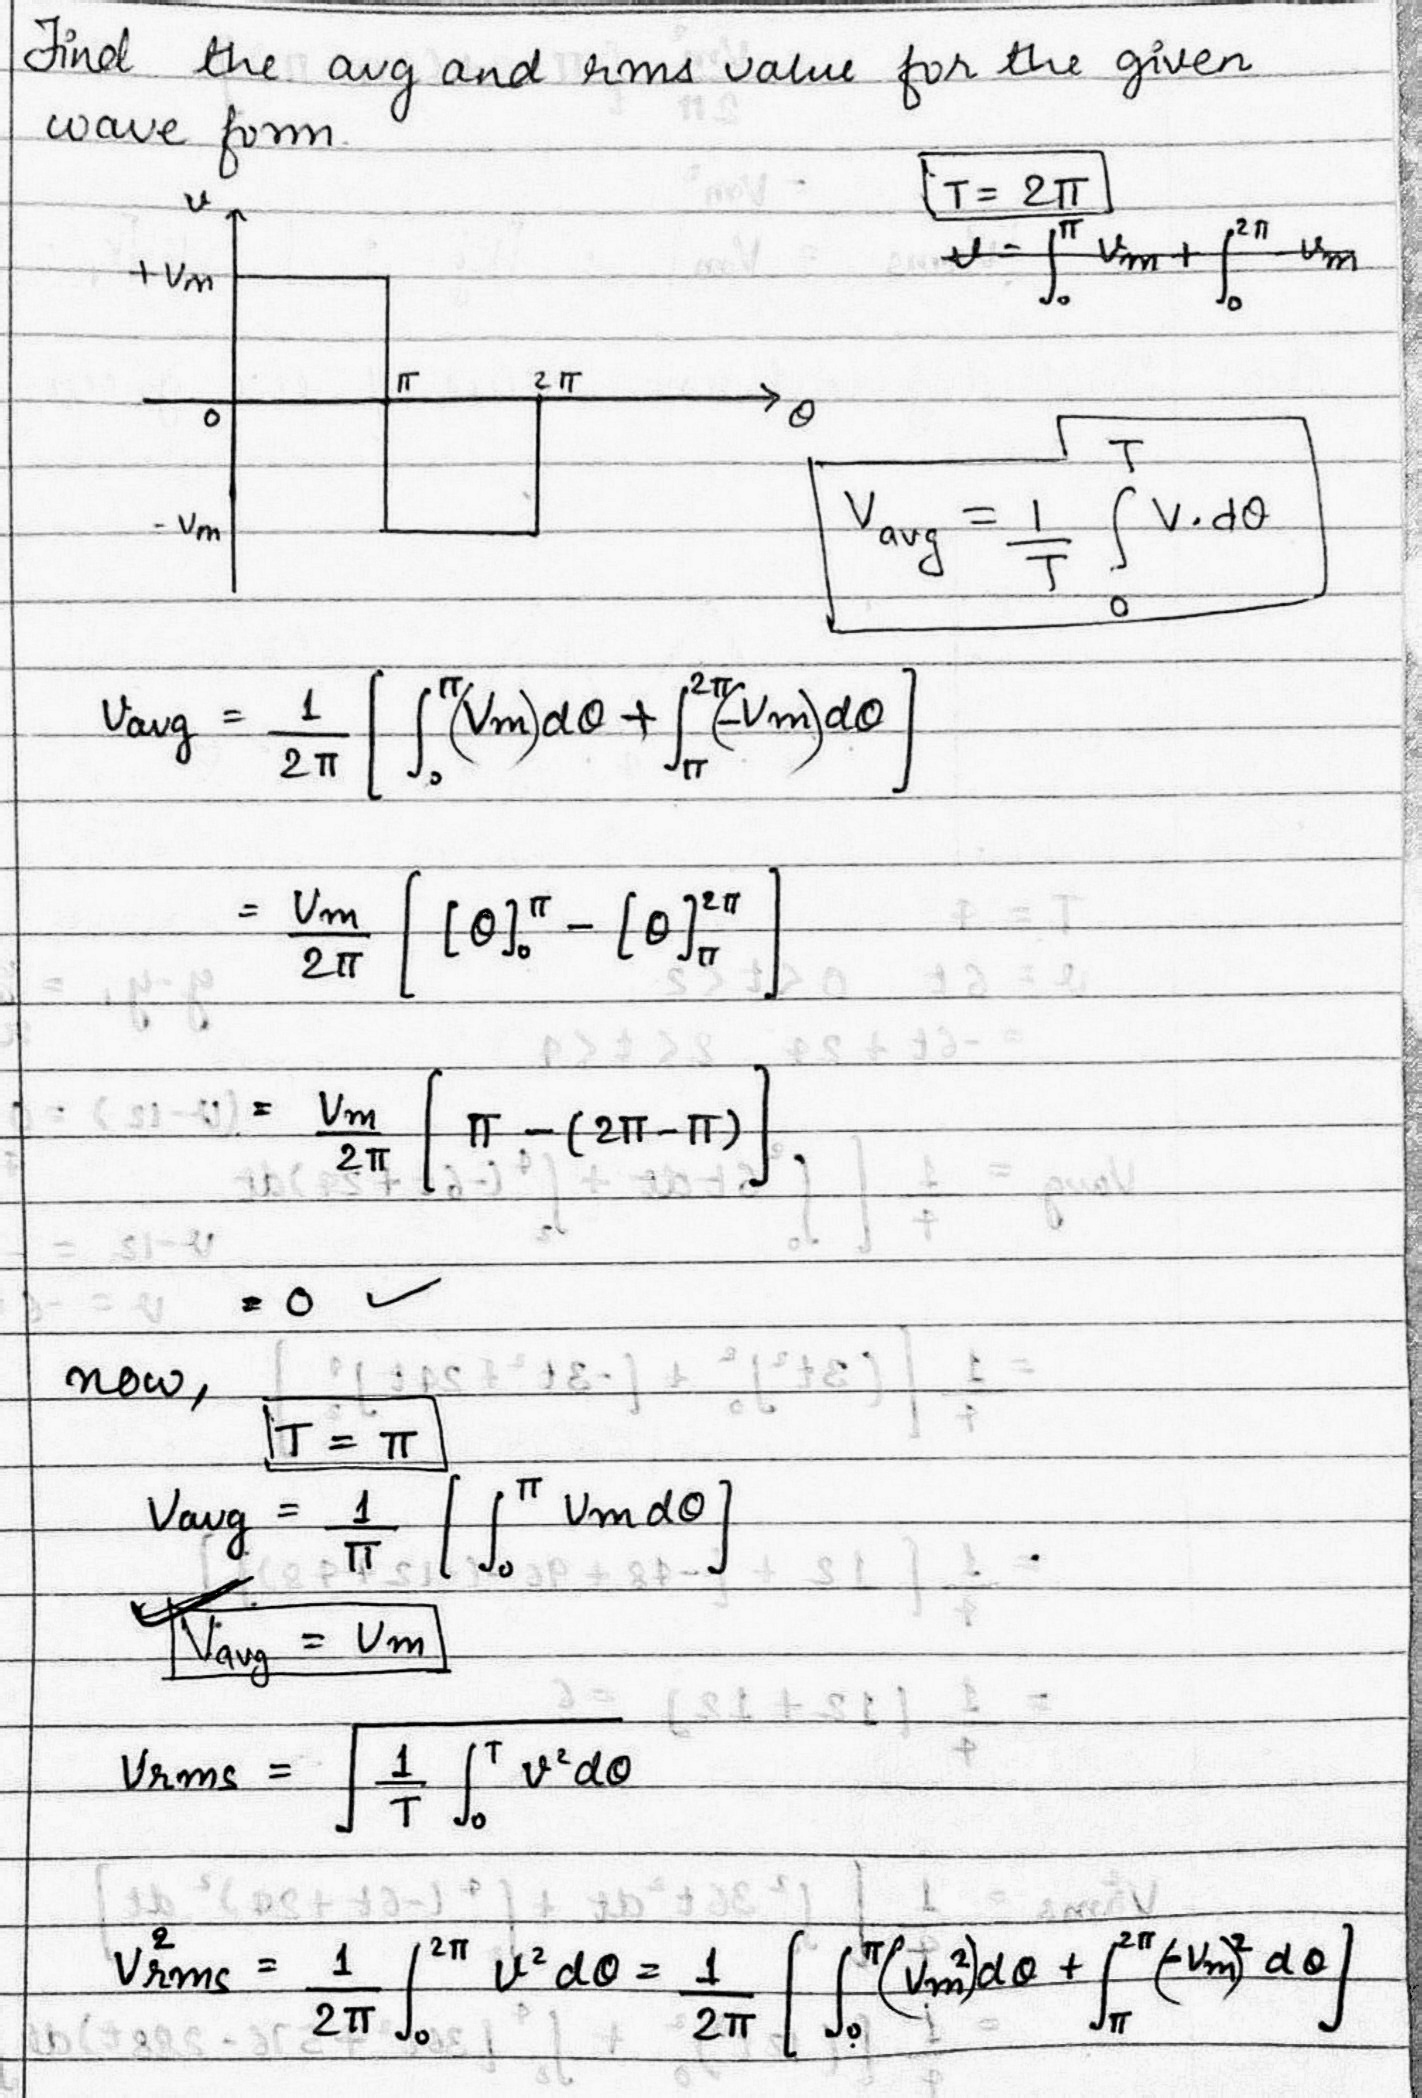 Find the avg and rms value for the given
wave form.
T = 2π
v = ∫₀^π Vm + ∫₀^2π -Vm
v
+Vm
π
2π
0
θ
-Vm
Vavg = 1/T ∫₀^T V.dθ
Vavg = 1/2π [ ∫₀^π (Vm)dθ + ∫π^2π (-Vm)dθ ]
= Vm/2π [ [θ]₀^π - [θ]π^2π ]
= Vm/2π [ π - (2π-π) ]
= 0 ✓
now,
T = π
Vavg = 1/π [ ∫₀^π Vm dθ ]
Vavg = Vm
Vrms = √( 1/T ∫₀^T v² dθ
V²rms = 1/2π ∫₀^2π v² dθ = 1/2π [ ∫₀^π (Vm²)dθ + ∫π^2π (-Vm)² dθ ]